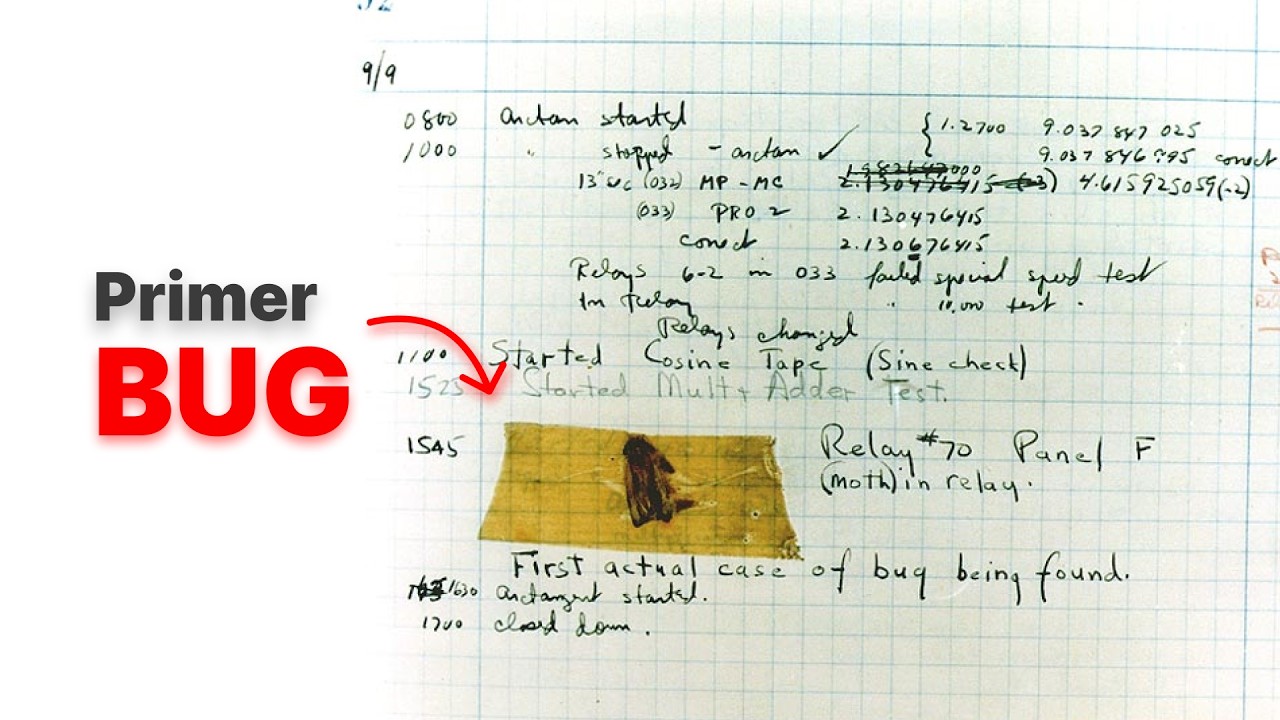 92
9/9
0800 arctan started { 1.2700 9.037 847 025
1000 " stopped - arctan ✓ 9.037 846 995 conect
13"uc (032) MP - MC 2.130476415 (-3) 4.615925059(-2)
(033) PRO 2 2.130476415
conect 2.130676415
Relays 6-2 in 033 failed special speed test
In Relay " 10.000 test .
Relays changed
1100 Started Cosine Tape (Sine check)
1525 Started Mult+ Adder Test.
Primer
BUG
1545 Relay #70 Panel F
(moth) in relay.
First actual case of bug being found.
1630 arctangent started.
1700 closed down .